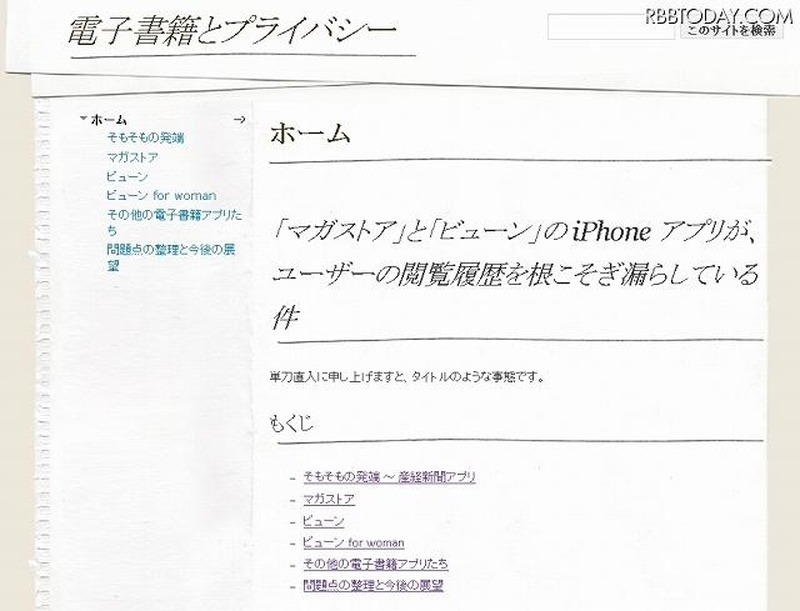 RBBTODAY.COM
電子書籍とプライバシー
このサイトを検索
ホーム
そもそもの発端
マガストア
ビューン
ビューン for woman
その他の電子書籍アプリた
ち
問題点の整理と今後の展
望
ホーム
「マガストア」と「ビューン」の iPhone アプリが、
ユーザーの閲覧履歴を根こそぎ漏らしている
件
単刀直入に申し上げますと、タイトルのような事態です。
もくじ
- そもそもの発端 ～ 産経新聞アプリ
- マガストア
- ビューン
- ビューン for woman
- その他の電子書籍アプリたち
- 問題点の整理と今後の展望